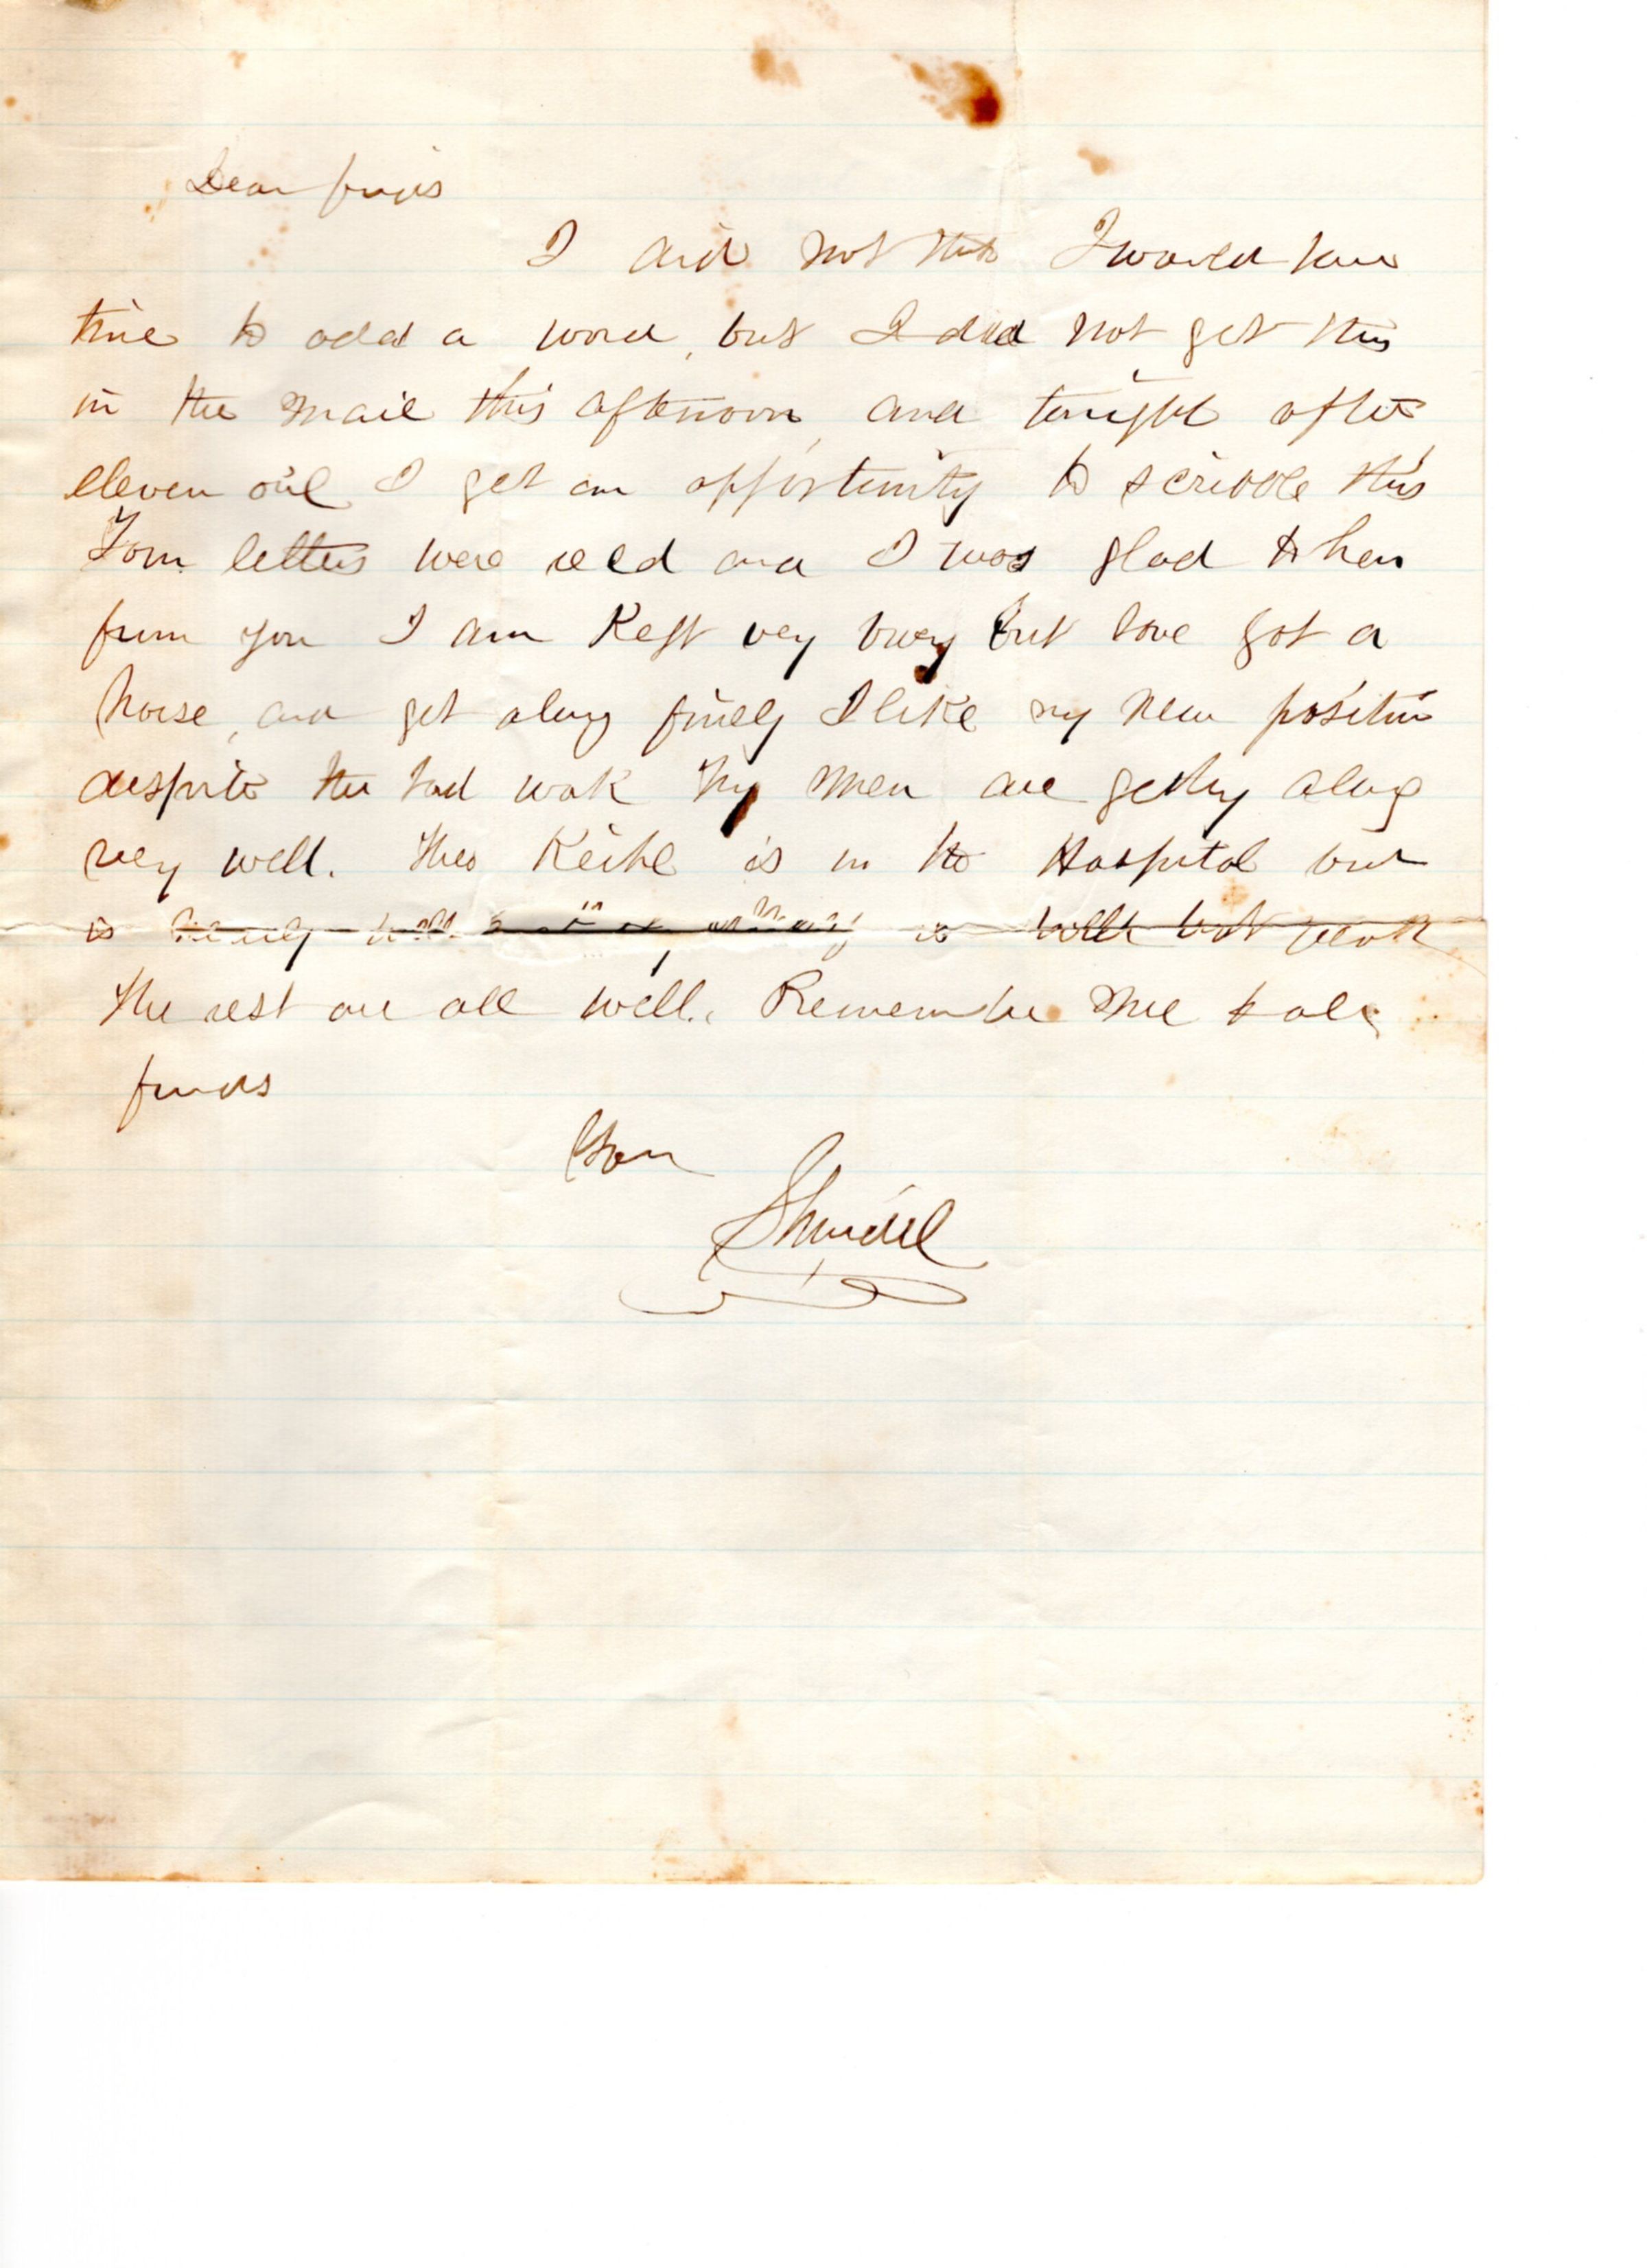 Dear friends
I did not think I would have
time to add a word, but I did not get this
in the mail this afternoon, and tonight after
eleven oclk I get an opportunity to scribble this
Your letters were recd and I was glad to hear
from you I am Kept very busy but have got a
horse, and get along finely I like my new position
despite the hard work My men are getting along
very well. Theo Keihl is in the Hospital but
is well but weak
The rest are all well. Remember me to all
friends
Yours
Shindel